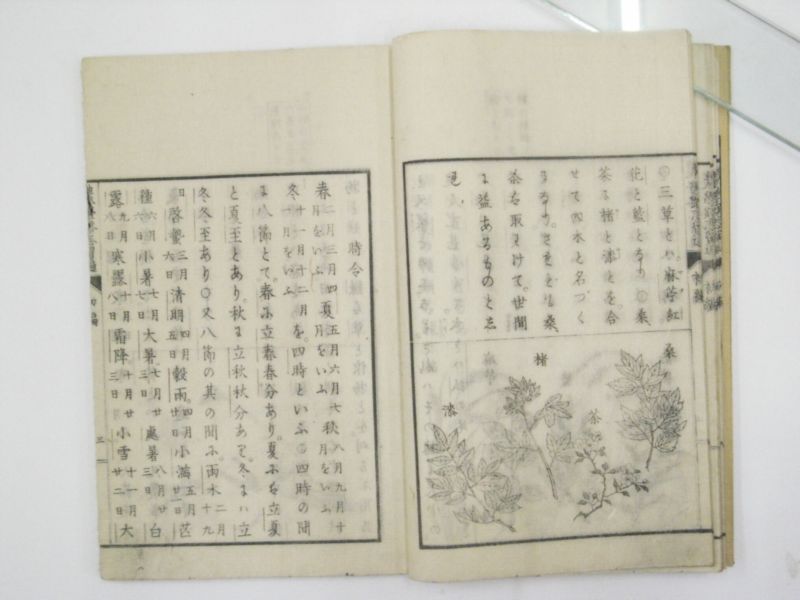 〇三草とハ。麻苧紅
花と藍となり〇桑
茶に楮と漆とを合
せて四木と名づく
るなり。
桑
茶を取わけて。世間
に益あるものと志
桑
楮
茶
漆
時令
春二月三月四月をいふ夏五月六月七月をいふ秋八月九月十月をいふ
冬十一月十二月をいふを。四時といふ〇四時の間
に八節とて。春に立春春分あり。夏に立夏
と夏至とあり。秋に立秋秋分あり。冬にハ立
冬冬至あり〇又八節の其の間に雨水二月十九
日啓蟄三月清明四月五日穀雨四月廿日小満五月廿一日芒
種六月六日小暑七月七日大暑七月廿三日處暑八月廿三日白
露九月八日寒露十月八日霜降十月廿三日小雪十一月廿二日大
初編
三